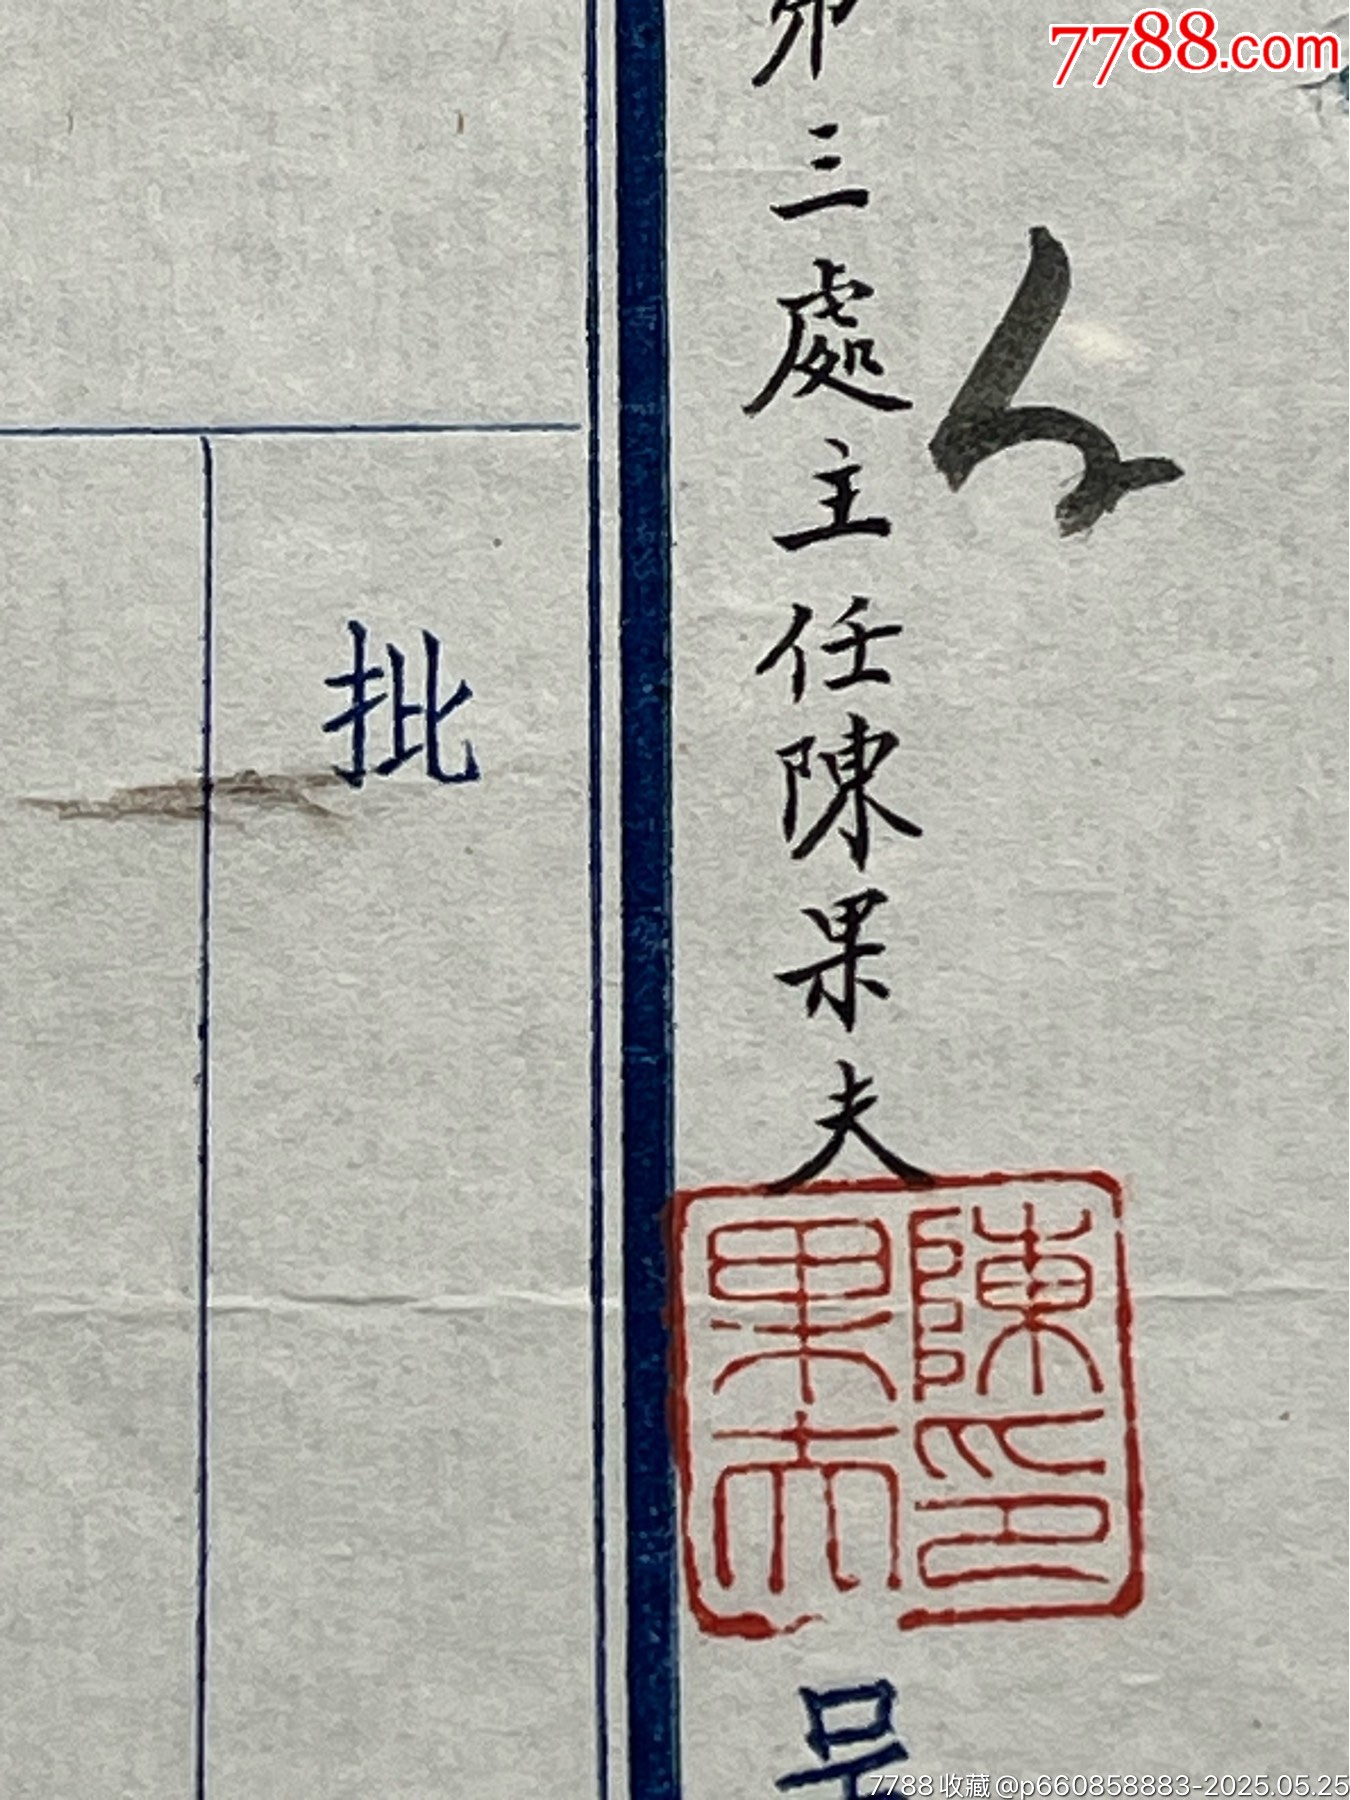 7788.com
第三處主任陳果夫
陳印果夫
呈
批
7788收藏@p660858883-2025.05.25